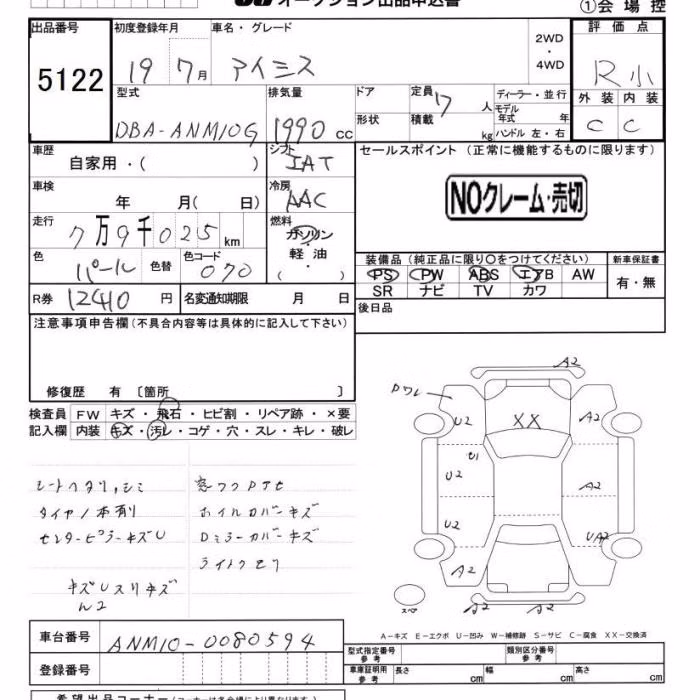 オークション出品申込書 ①会場控
出品番号 初度登録年月 車名・グレード 評価点
5122 19 7月 アイシス 2WD ・ 4WD R小
型式 排気量 ドア 定員 7 人 ディーラー・並行 外装 内装
DBA-ANM10G 1990 cc 形状 積載 kg モデル年式 年 ハンドル 左・右 C C
車歴 シフト セールスポイント (正常に機能するものに限ります)
自家用・( ) IAT
車検 冷房 NOクレーム・売切
年 月( 日) AAC
走行 燃料
7万9千025km ガソリン・軽油
( ・ )
色 パール 色替 色コード 070
装備品 (純正品に限り○をつけてください) 新車保証書
PS PW ABS エアB AW 有・無
SR ナビ TV カワ
R券 12410 円 名変通知期限 月 日 後日品
注意事項申告欄(不具合内容等は具体的に記入して下さい)
修復歴 有 〔箇所 〕
検査員 FW キズ・飛石・ヒビ割・リペア跡・×要
記入欄 内装 キズ・汚レ・コゲ・穴・スレ・キレ・破レ
A2
Dワレ
U2 XX A2
U1
U2 A2
U2 UA2
A2 A2
スペ A2
シートヘタリ,シミ
タイヤノ本有リ
センターピラーキズU
ホイルカバーキズ
Dミラーカバーキズ
ライトクモリ
キズUスリキズ
A-キズ E-エクボ U-凹み W-補修跡 S-サビ C-腐食 XX-交換済
車台番号 ANM10-0080594
型式指定番号 参考 類別区分番号 参考
登録番号 車庫証明用 参考 長さ cm 幅 cm 高さ cm
希望出品コーナー(コーナーは各会場により異なります)